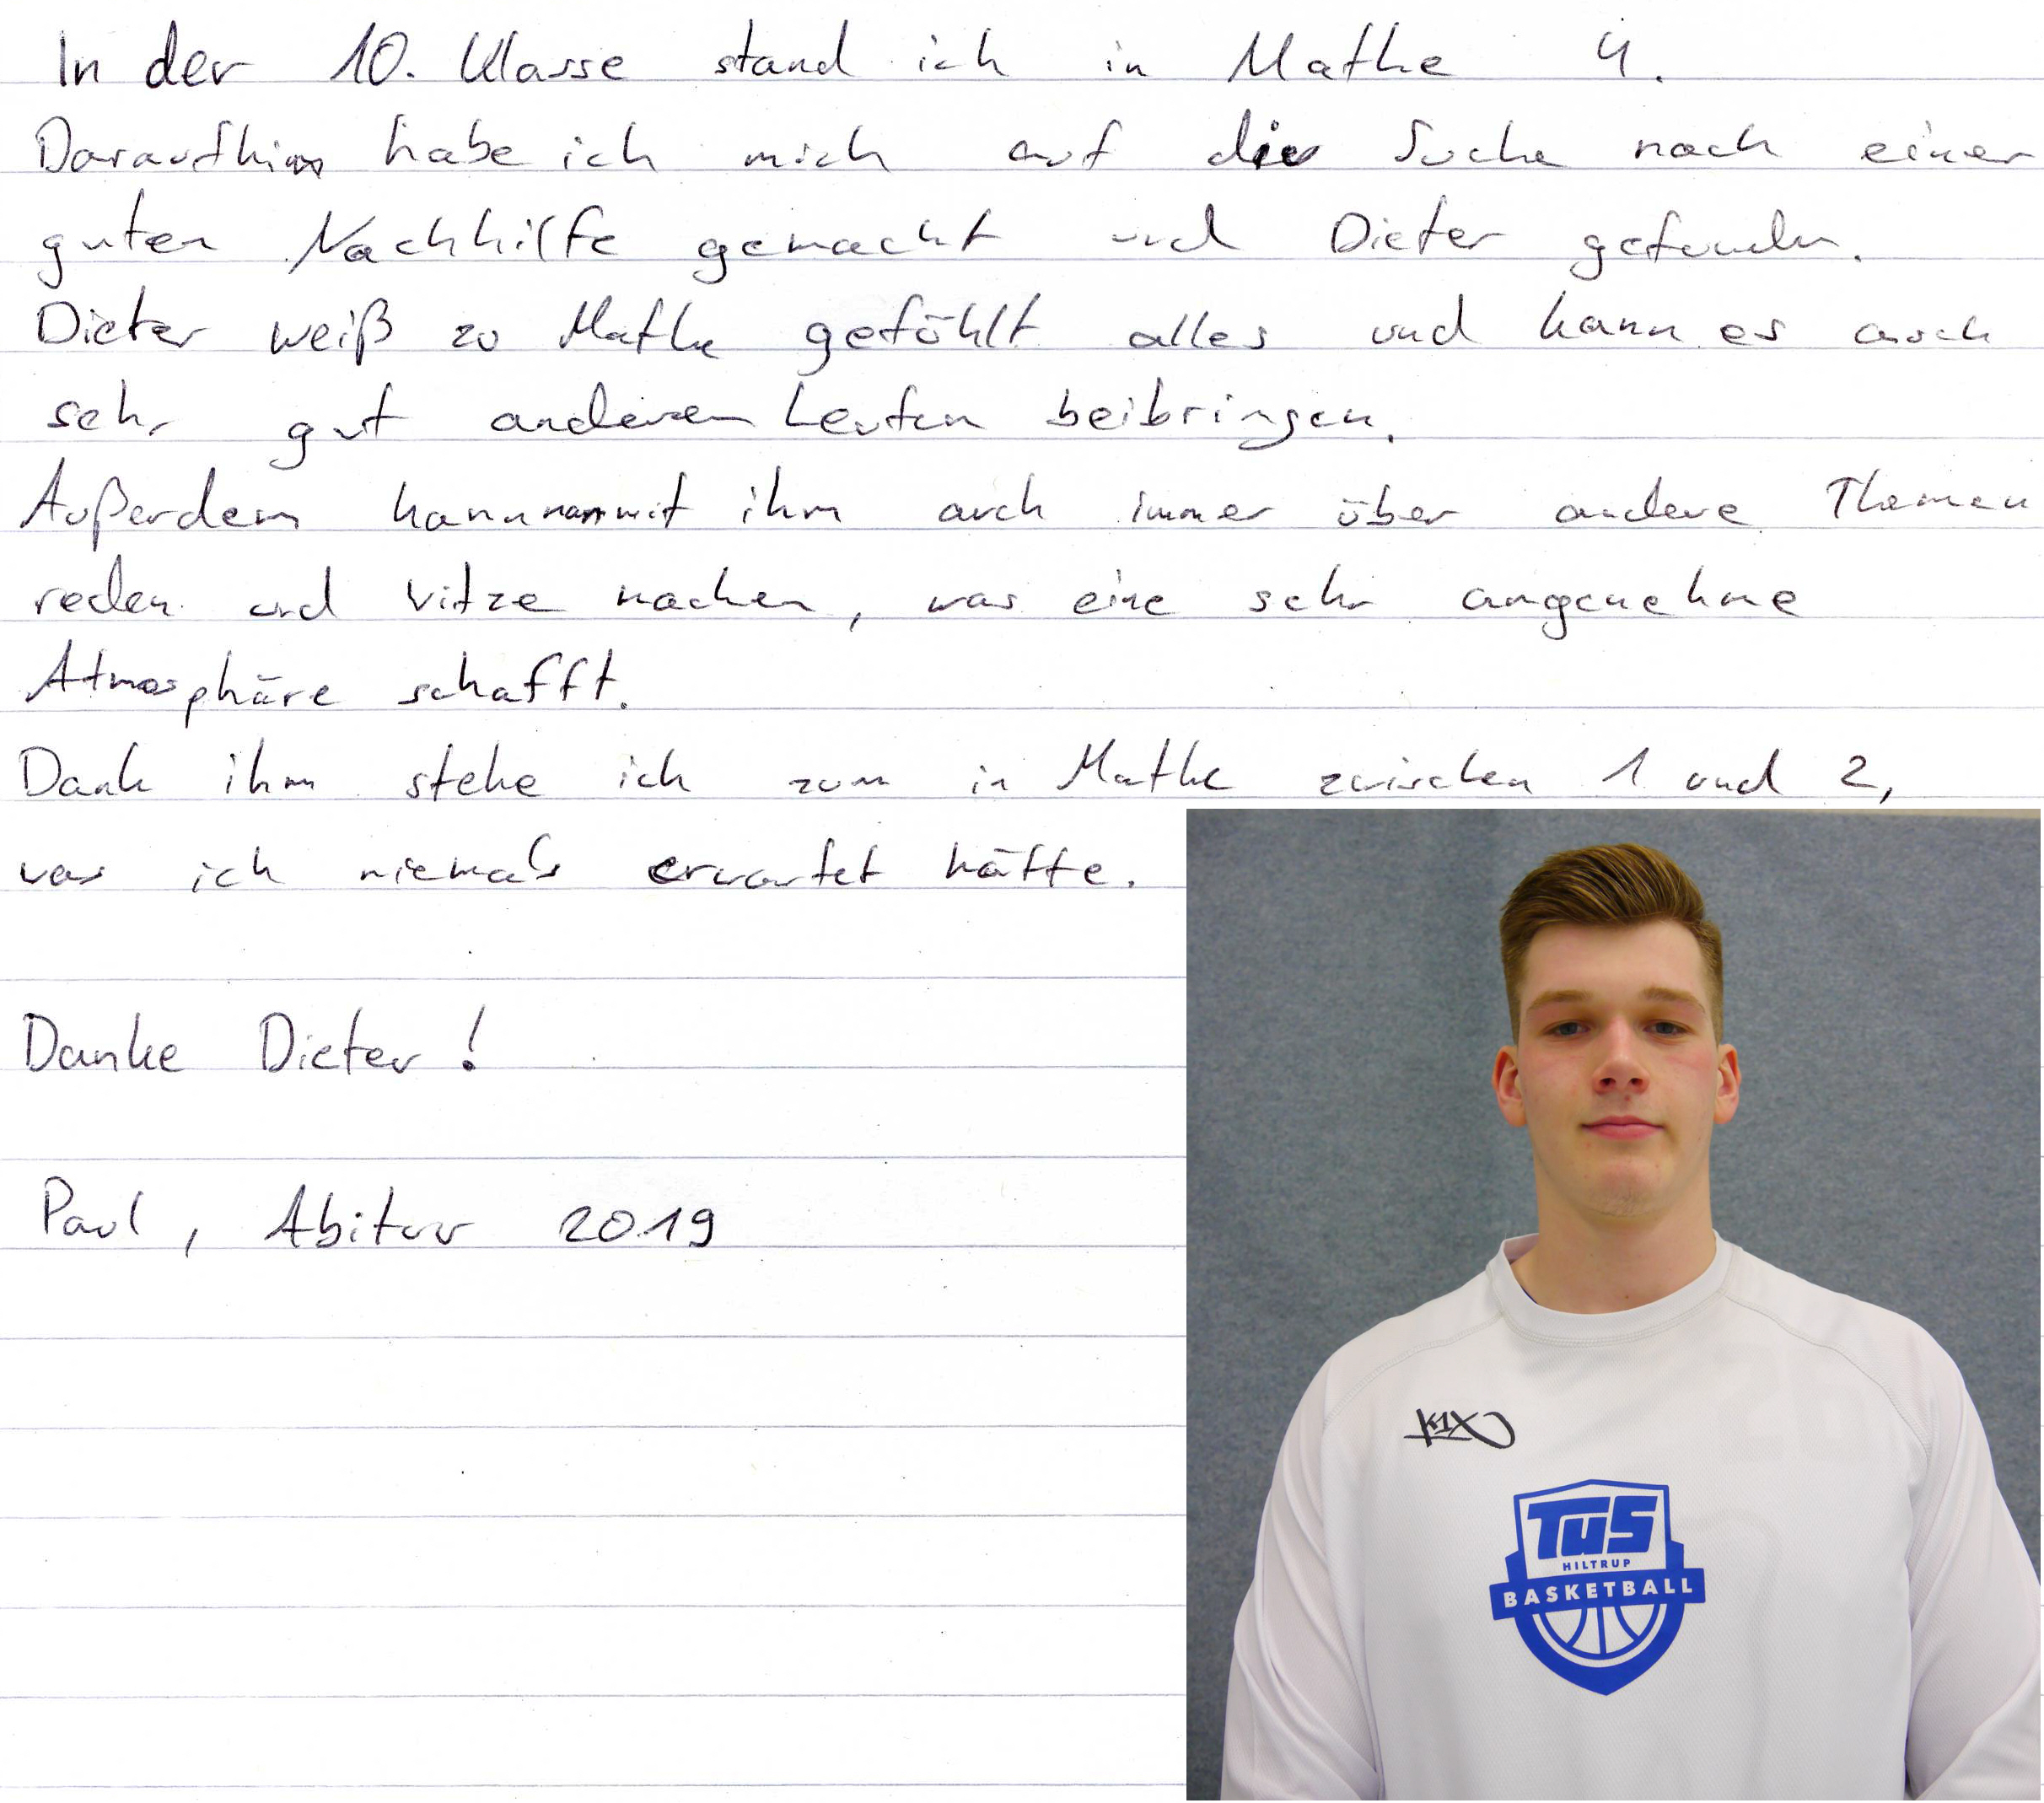 In der 10. Klasse stand ich in Mathe 4.
Daraufhin habe ich mich auf die Suche nach einer
guten Nachhilfe gemacht und Dieter gefunden.
Dieter weiß zu Mathe gefühlt alles und kann es auch
sehr gut anderen Leuten beibringen.
Außerdem kann man mit ihm auch immer über andere Themen
reden und Witze machen, was eine sehr angenehme
Atmosphäre schafft.
Dank ihm stehe ich zum in Mathe zwischen 1 und 2,
was ich niemals erwartet hätte.
Danke Dieter!
Paul, Abitur 2019
K1X
TuS
HILTRUP
BASKETBALL